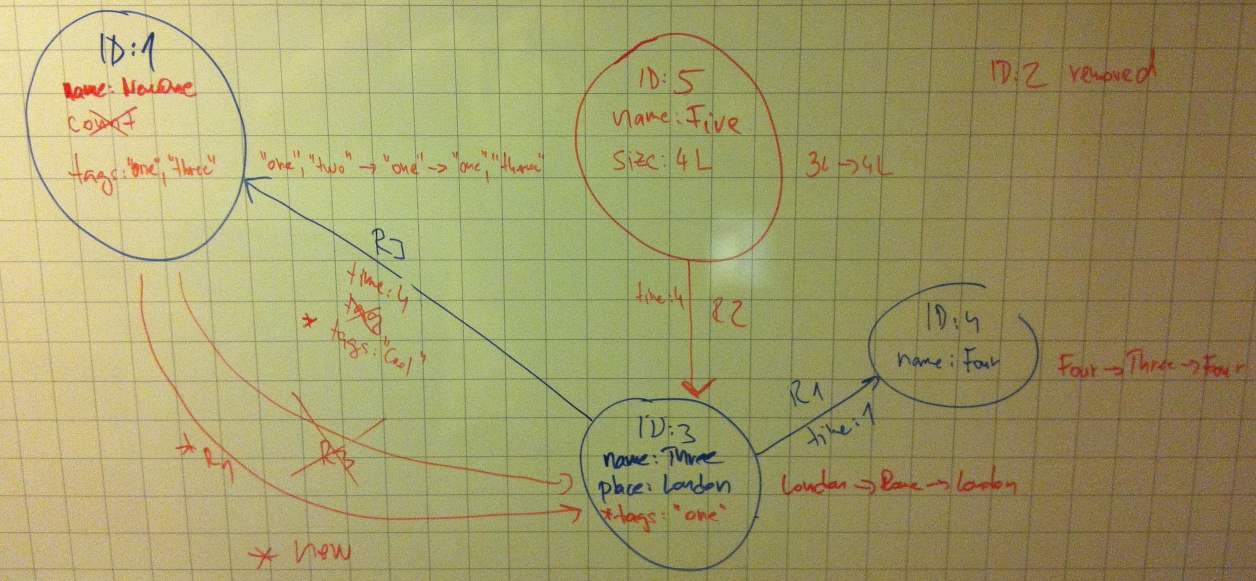 ID:1
name: NewOne
count
tags: "one", "three"
"one", "two" → "one" → "one", "three"
ID:5
name: Five
size: 4L
3L → 4L
ID:2 removed
time:4
* tags: "Cool"
time:4
R2
ID:4
name: Four
Four → Three → Four
R1
time:1
ID:3
name: Three
place: London
*tags: "one"
London → Rome → London
* new